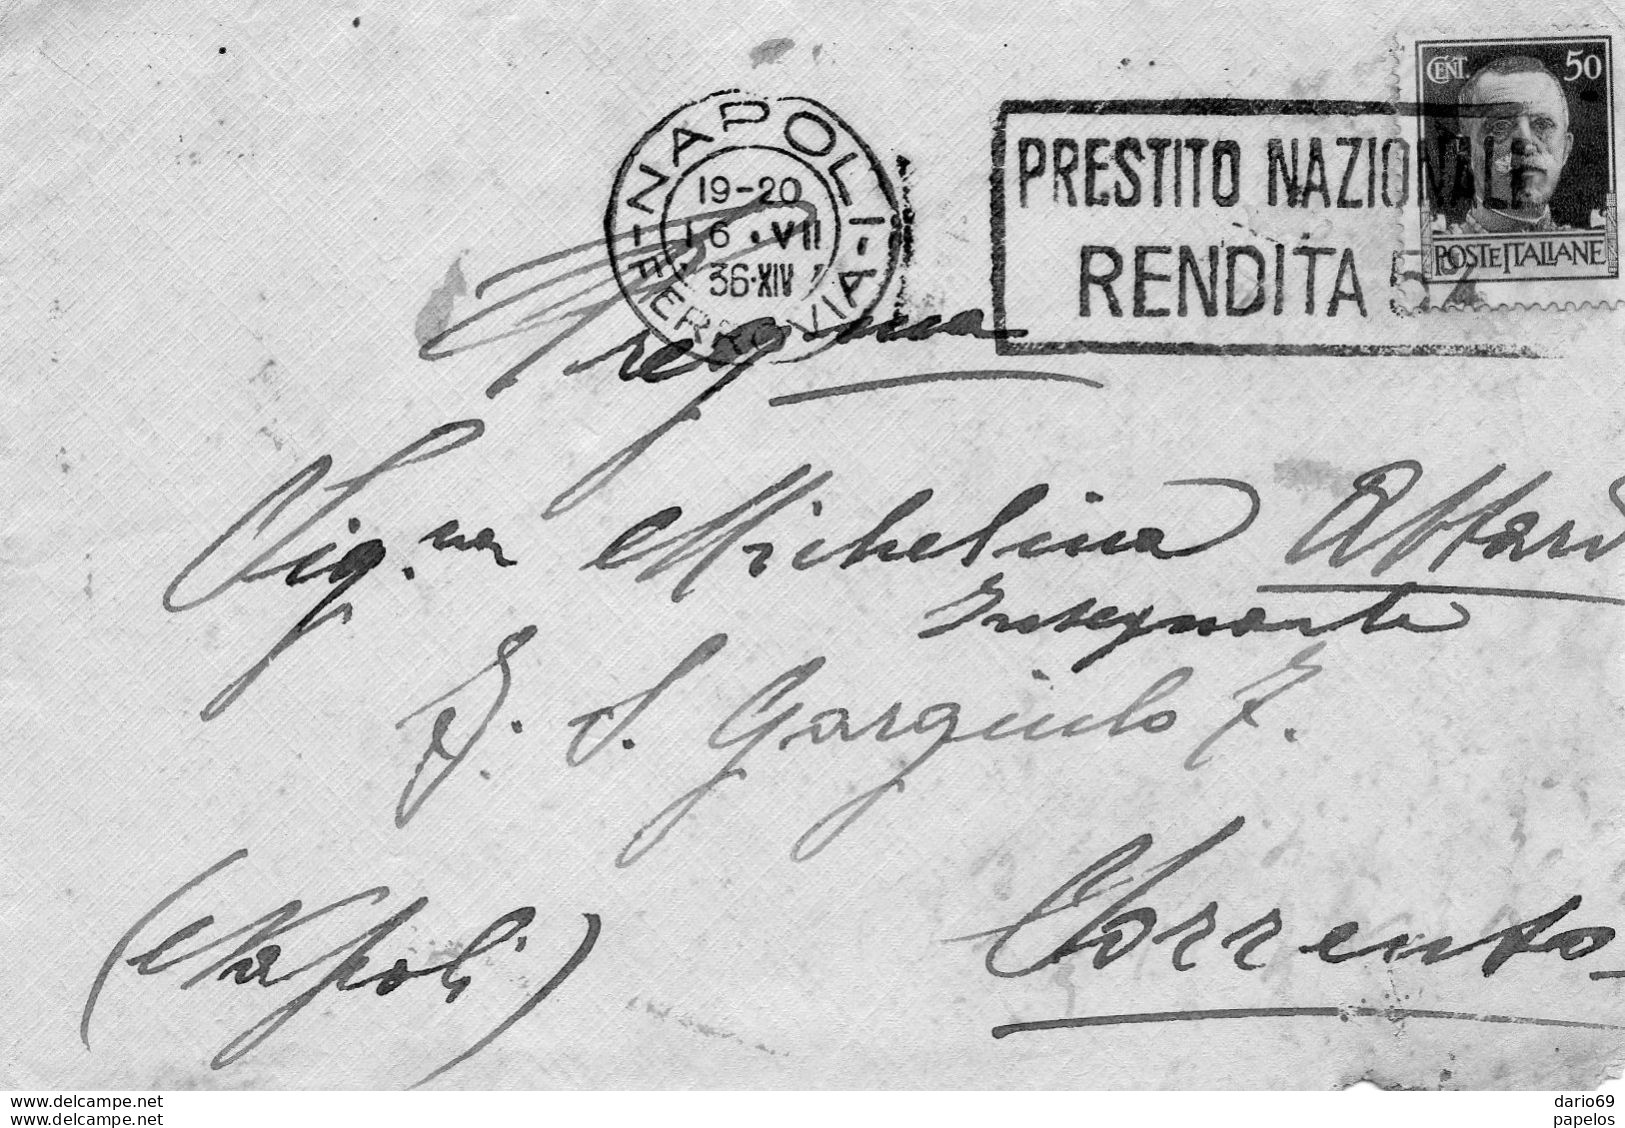 CENT. 50
POSTE ITALIANE
NAPOLI
FERROVIA
19-20
16 . VII
36·XIV
PRESTITO NAZIONALE
RENDITA 5%
Sig.na Michelina Attard
Insegnante
S. Gargiulo 7.
Sorrento
(Napoli)
www.delcampe.net
www.delcampe.net
dario69
papelos